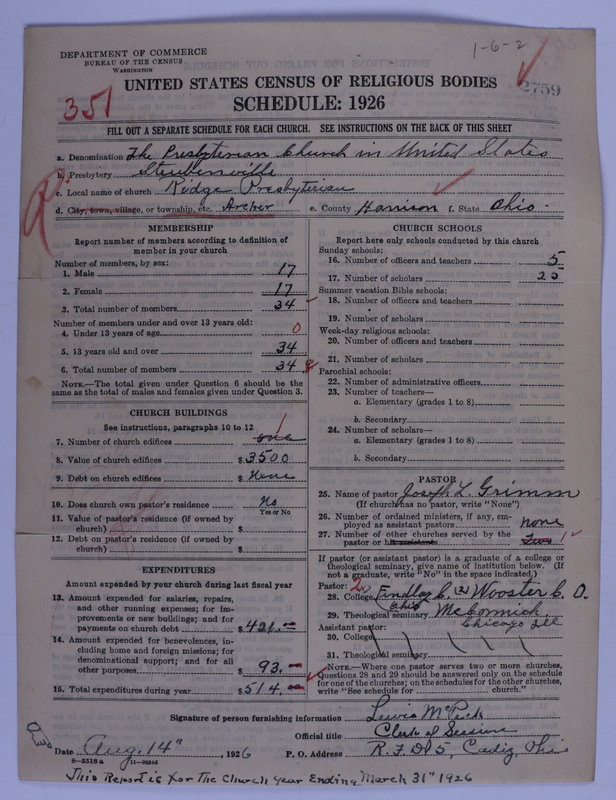 1-6-2
DEPARTMENT OF COMMERCE
BUREAU OF THE CENSUS
WASHINGTON
2759
UNITED STATES CENSUS OF RELIGIOUS BODIES
351
SCHEDULE: 1926
FILL OUT A SEPARATE SCHEDULE FOR EACH CHURCH. SEE INSTRUCTIONS ON THE BACK OF THIS SHEET
a. Denomination The Presbyterian Church in United States
b. Presbytery Steubenville
c. Local name of church Ridge Presbyterian
d. City, town, village, or township, etc. Archer e. County Harrison f. State Ohio.
MEMBERSHIP
Report number of members according to definition of
member in your church
Number of members, by sex:
1. Male 17
2. Female 17
3. Total number of members 34
Number of members under and over 13 years old:
4. Under 13 years of age 0
5. 13 years old and over 34
6. Total number of members 34
NOTE.—The total given under Question 6 should be the
same as the total of males and females given under Question 3.
CHURCH BUILDINGS
See instructions, paragraphs 10 to 12
7. Number of church edifices one 1
8. Value of church edifices $3500
9. Debt on church edifices $ None
10. Does church own pastor's residence No
Yes or No
11. Value of pastor's residence (if owned by
church) $
12. Debt on pastor's residence (if owned by
church) $
EXPENDITURES
Amount expended by your church during last fiscal year
13. Amount expended for salaries, repairs,
and other running expenses; for im-
provements or new buildings; and for
payments on church debt $421.—
14. Amount expended for benevolences, in-
cluding home and foreign missions; for
denominational support; and for all
other purposes 93.—
15. Total expenditures during year $514.00
CHURCH SCHOOLS
Report here only schools conducted by this church
Sunday schools:
16. Number of officers and teachers 5
17. Number of scholars 20
Summer vacation Bible schools:
18. Number of officers and teachers
19. Number of scholars
Week-day religious schools:
20. Number of officers and teachers
21. Number of scholars
Parochial schools:
22. Number of administrative officers
23. Number of teachers—
a. Elementary (grades 1 to 8)
b. Secondary
24. Number of scholars—
a. Elementary (grades 1 to 8)
b. Secondary
PASTOR
25. Name of pastor Joseph L. Grimm
(If church has no pastor, write "None")
26. Number of ordained ministers, if any, em-
ployed as assistant pastors none
27. Number of other churches served by the
pastor or his assistants Two 1
If pastor (or assistant pastor) is a graduate of a college or
theological seminary, give name of institution below. (If
not a graduate, write "No" in the space indicated.)
Pastor:
28. College Findlay C. Wooster C. O.
Ohio
29. Theological seminary McCormick
Chicago Ill
Assistant pastor:
30. College
31. Theological seminary
NOTE.—Where one pastor serves two or more churches,
Questions 28 and 29 should be answered only on the schedule
for one of the churches; on the schedules for the other churches,
write "See schedule for church."
Signature of person furnishing information Lewis McPeck
Official title Clerk of Session
Date Aug. 14", 1926 P. O. Address R. F. D 5, Cadiz, Ohio
8-5518a
This Report is for The Church year Ending March 31" 1926